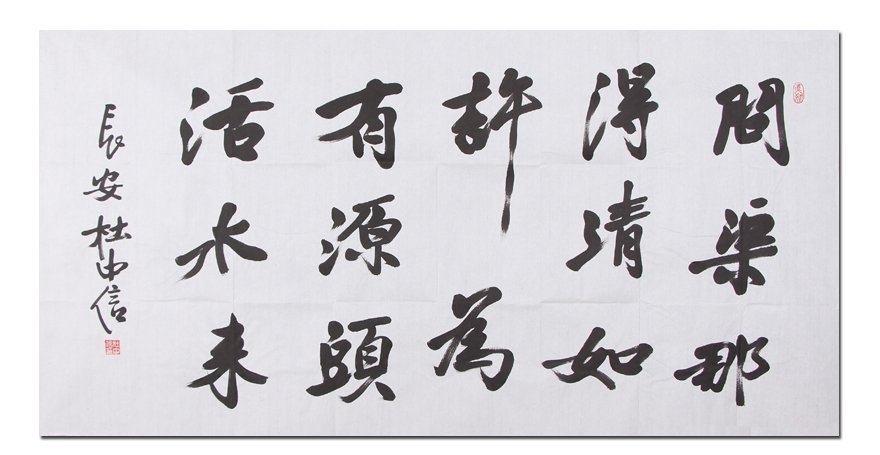 問渠那
得清如
許為
有源頭
活水来
長安杜中信